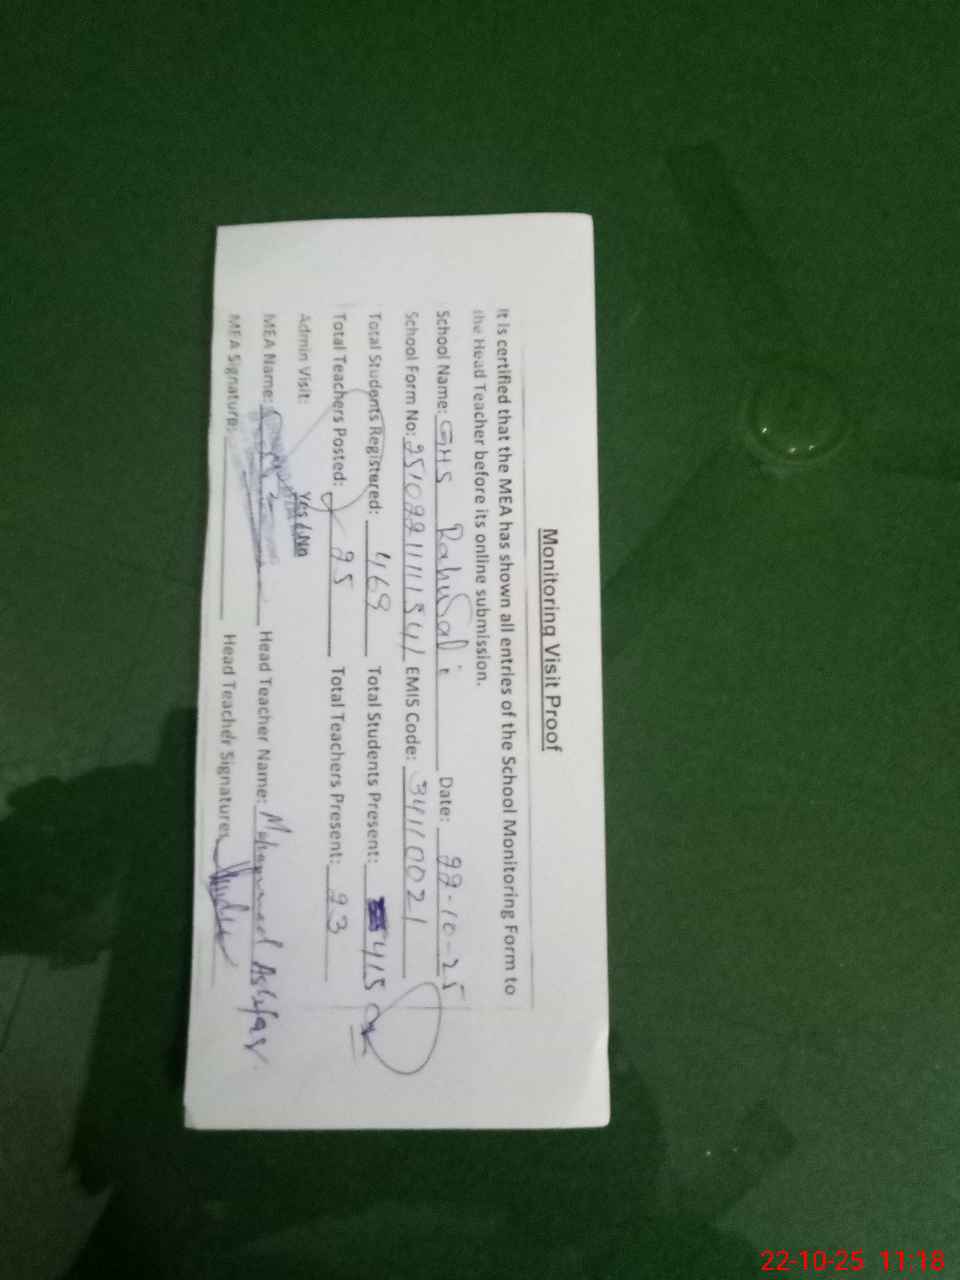 Monitoring Visit Proof
It is certified that the MEA has shown all entries of the School Monitoring Form to
the Head Teacher before its online submission.
School Name: GHS Date: 22-10-25
School Form No: 25102211111541 EMIS Code: 34110021
Total Students Registered: 469 Total Students Present: 415
Total Teachers Posted: 25 Total Teachers Present: 23
Admin Visit: Yes / No
MEA Name: Head Teacher Name: Mohammad
MEA Signature: Head Teacher Signature:
22-10-25 11:18